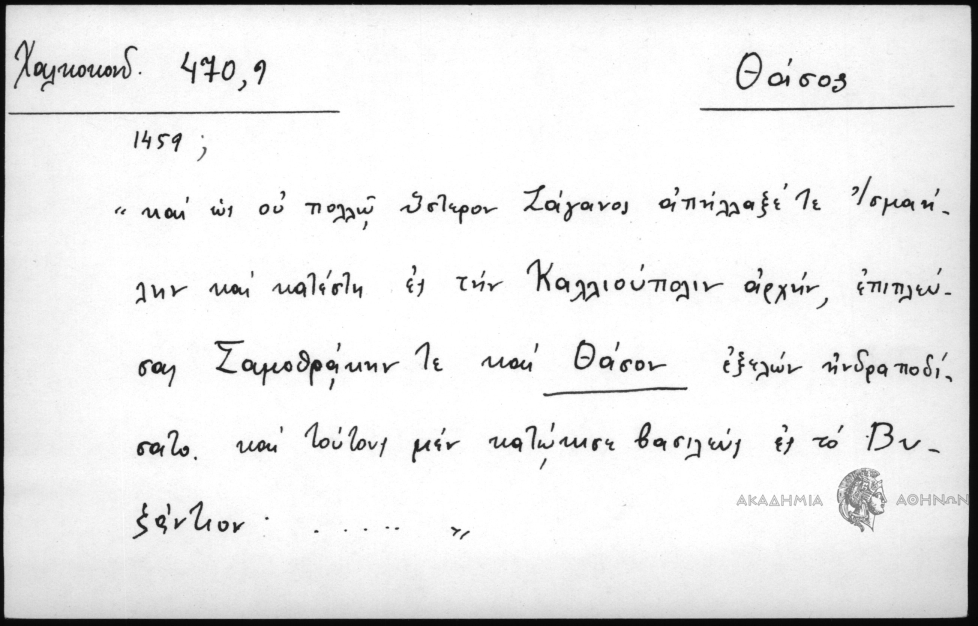 Χαλκοκονδ. 470,9
Θάσος
1459 ;
"καί ὡς οὐ πολλῷ ὕστερον Ζάγανος ἀπήλλαξέ τε Ἰσμαή-
λην καί κατέστη ἐς τήν Καλλιούπολιν ἀρχήν, ἐπιπλεύ-
σας Σαμοθρᾴκην τε καί Θάσον ἐξελών ἠνδραποδί-
σατο. καί τούτους μέν κατῴκισε βασιλεύς ἐς τό Βυ-
ζάντιον· ..... "
ΑΚΑΔΗΜΙΑ ΑΘΗΝΩΝ